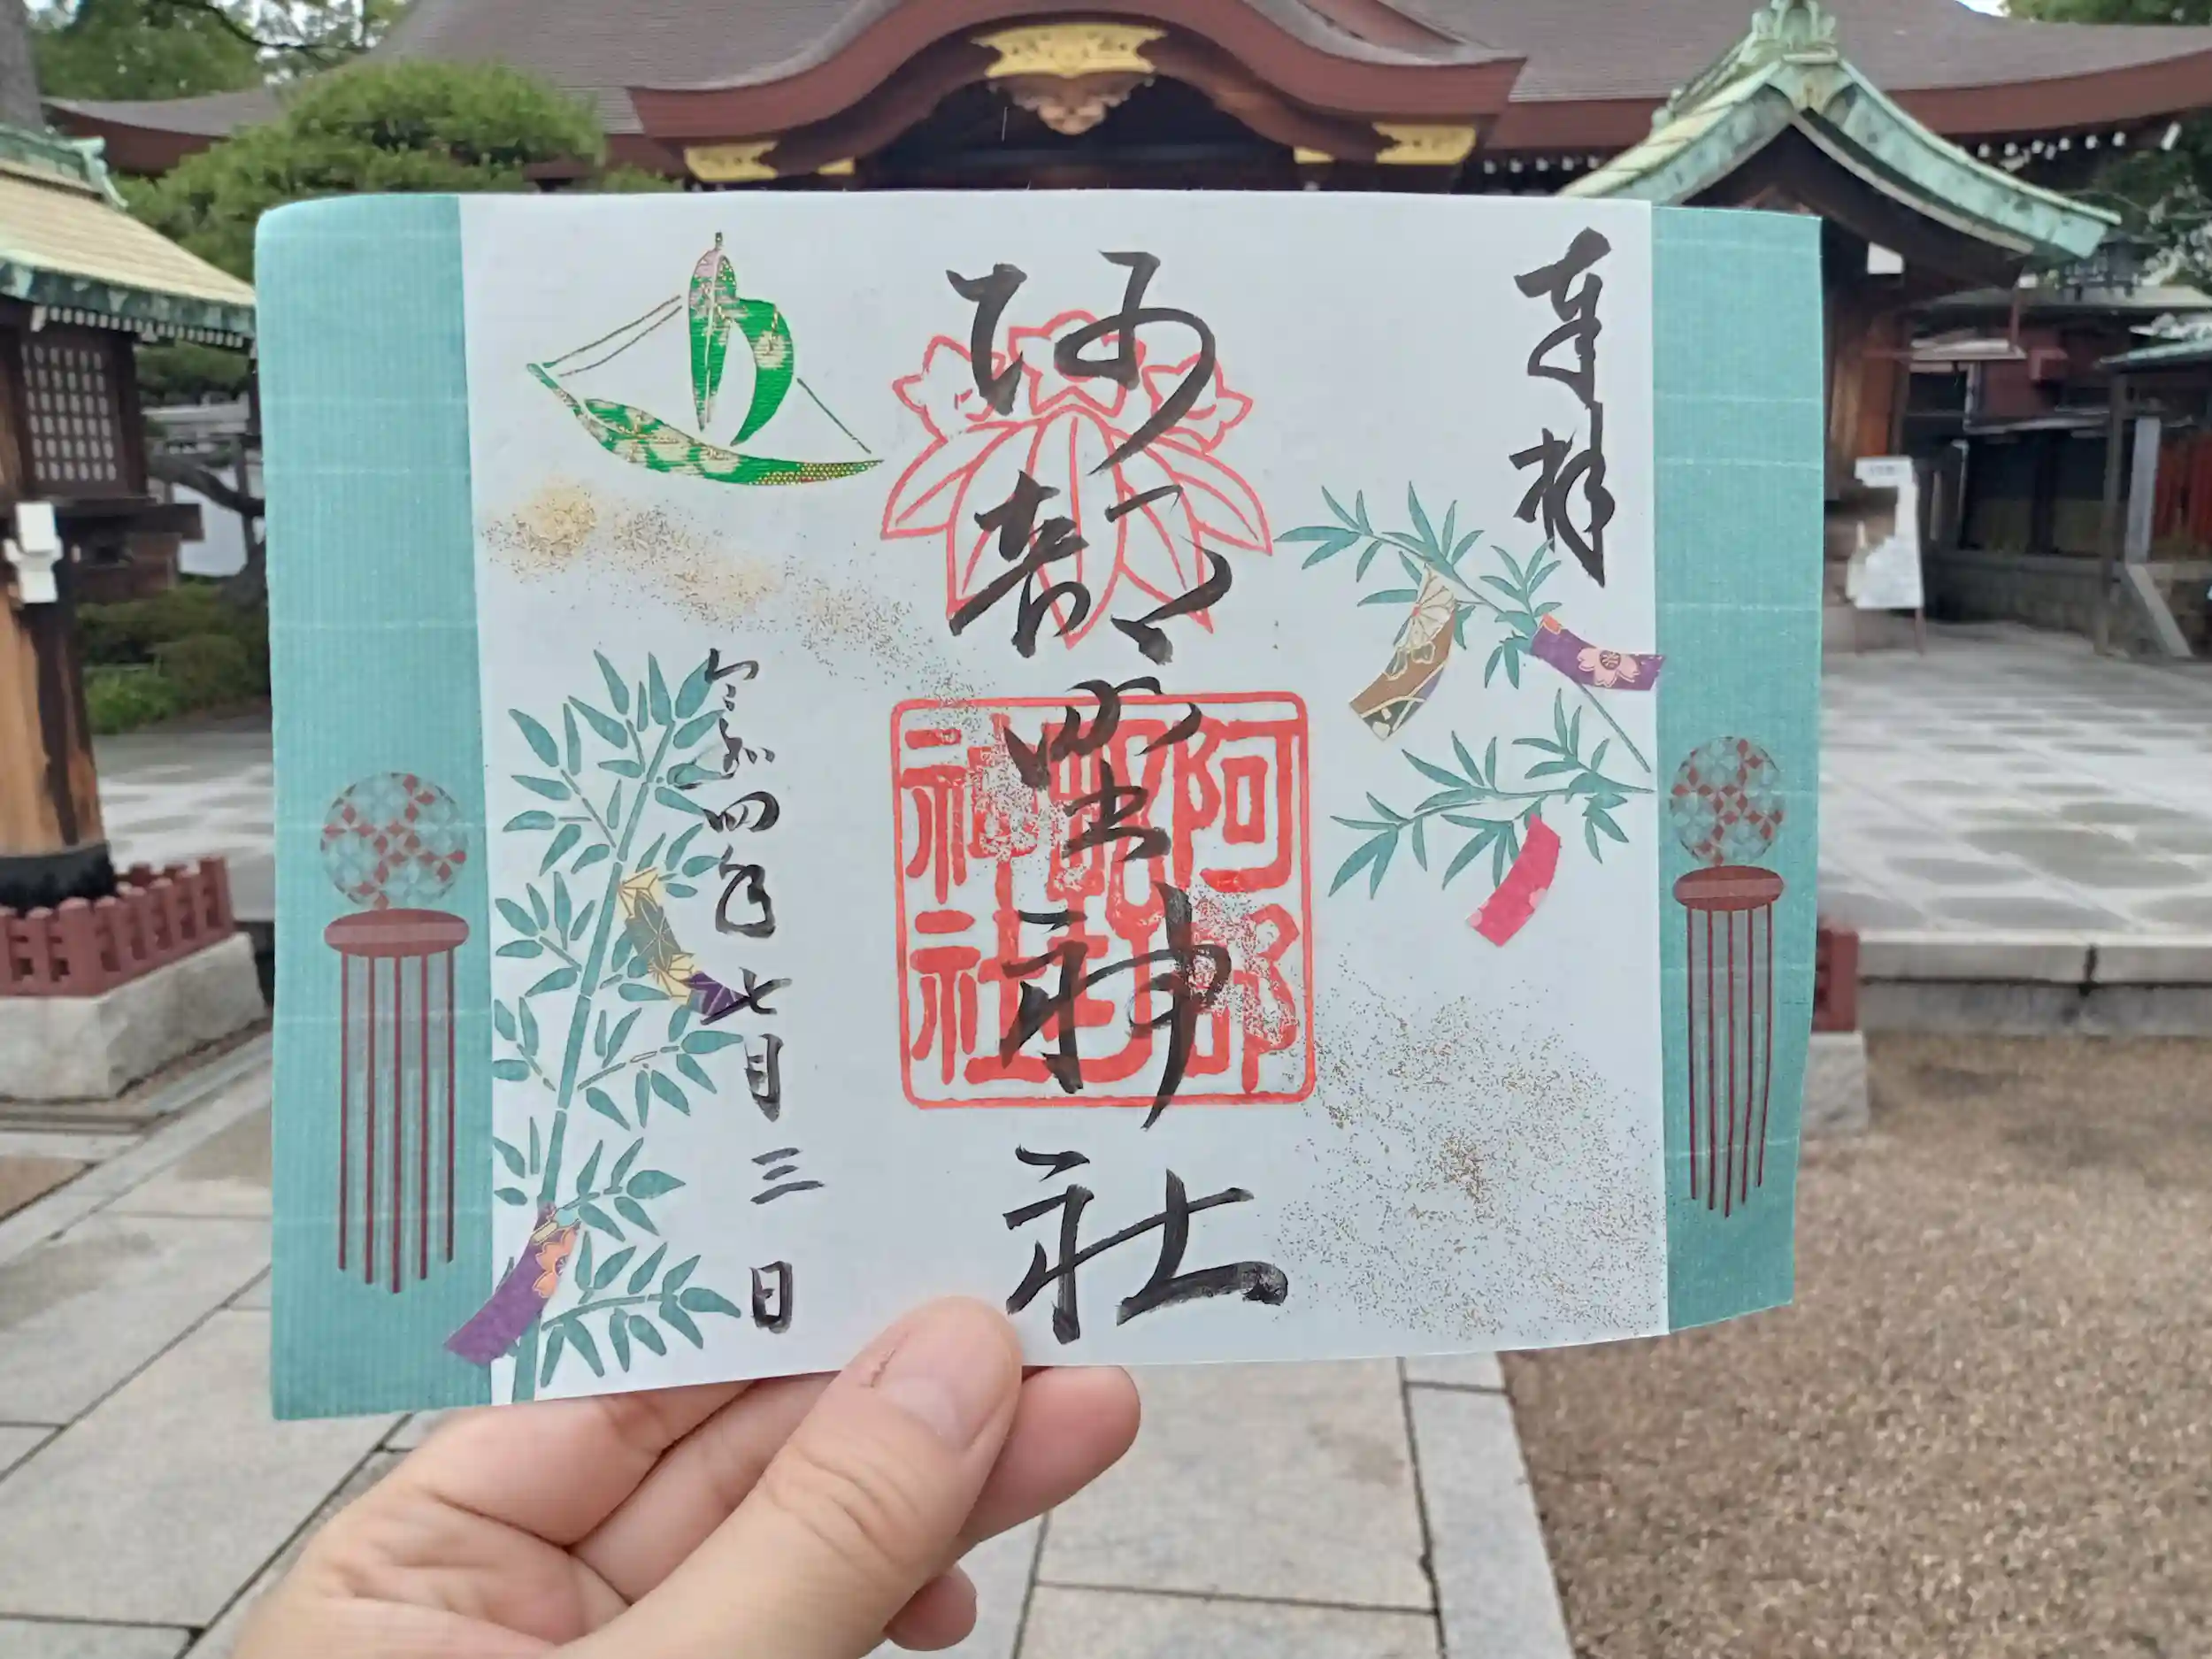 奉拝
阿部野神社
阿部
野神
神社
令和四年七月三日